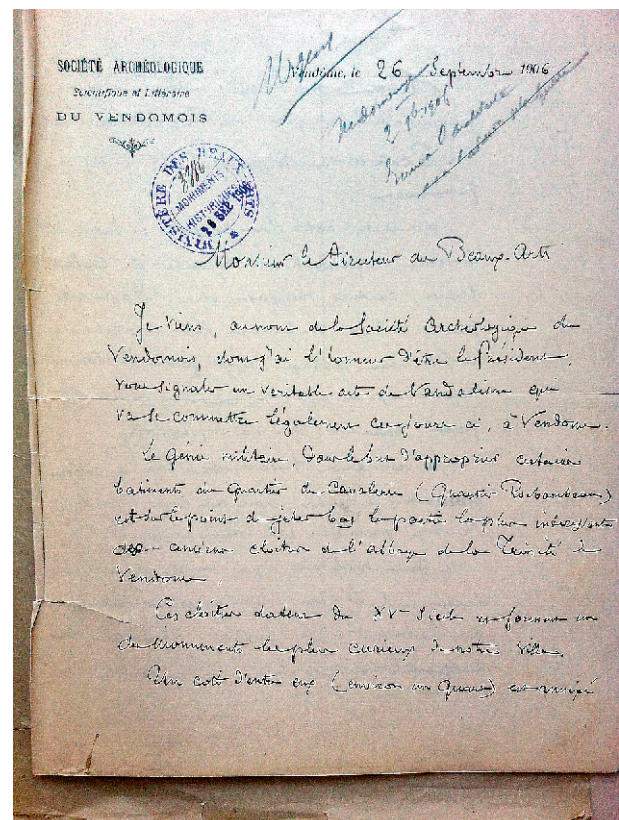 SOCIÉTÉ ARCHÉOLOGIQUE
Scientifique et Littéraire
DU VENDOMOIS
Urgent
Vendôme, le 26 Septembre 1906
MINISTÈRE DES BEAUX-ARTS
MONUMENTS
HISTORIQUES
28 SEP 1906
Monsieur le Directeur des Beaux-Arts
Je viens, au nom de la Société Archéologique du
Vendomois, dont j'ai l'honneur d'être le Président,
vous signaler un veritable acte de Vandalisme qui
va se commettre légalement ces jours ci, à Vendome.
Le Génie militaire, dans le but d'approprier certains
batiments du Quartier de Cavalerie (Quartier Rochambeau)
est sur le point de jeter bas la partie la plus intéressante
des anciens cloitres de l'abbaye de la Trinité à
Vendome
Ces cloitres datent du XVe Siecle et forment un
des Monuments les plus curieux de notre Ville.
Un coté d'entre eux (environ un Quart) est